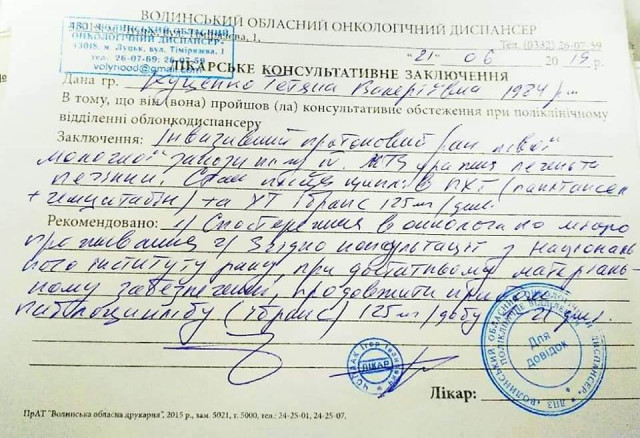 ВОЛИНСЬКИЙ ОБЛАСНИЙ ОНКОЛОГІЧНИЙ ДИСПАНСЕР
ОНКОЛОГІЧНИЙ ДИСПАНСЕР
43018, м. Луцьк, вул. Тімірязєва, 1
тел. 26-07-69; 26-07-59
volynood@gmail.com
Тел. (0332) 26-07-59
"21" 06 2019 р.
ЛІКАРСЬКЕ КОНСУЛЬТАТИВНЕ ЗАКЛЮЧЕННЯ
Дана гр. Куценко Тетяна Валеріївна
В тому, що він (вона) пройшов (ла) консультативне обстеження при поліклінічному
відділенні облонкодиспансеру
Заключення: Інвазивний протоковий рак лівої
молочної залози
печінки. Стан після ПХТ
та ХТ Ібранс 125 мг/день.
Рекомендовано: 1) Спостереження в онколога по місцю
проживання 2) Згідно консультації з Національ
ного інституту раку при достатньому матеріаль
ному забезпеченні, продовжити прийом
палбоциклібу (Ібранс) 125 мг/добу 21 день.
ЛІКАР
Для
довідок
Лікар:
ПрАТ "Волинська обласна друкарня", 2015 р., зам. 5021, т. 5000, тел.: 24-25-01, 24-25-07.